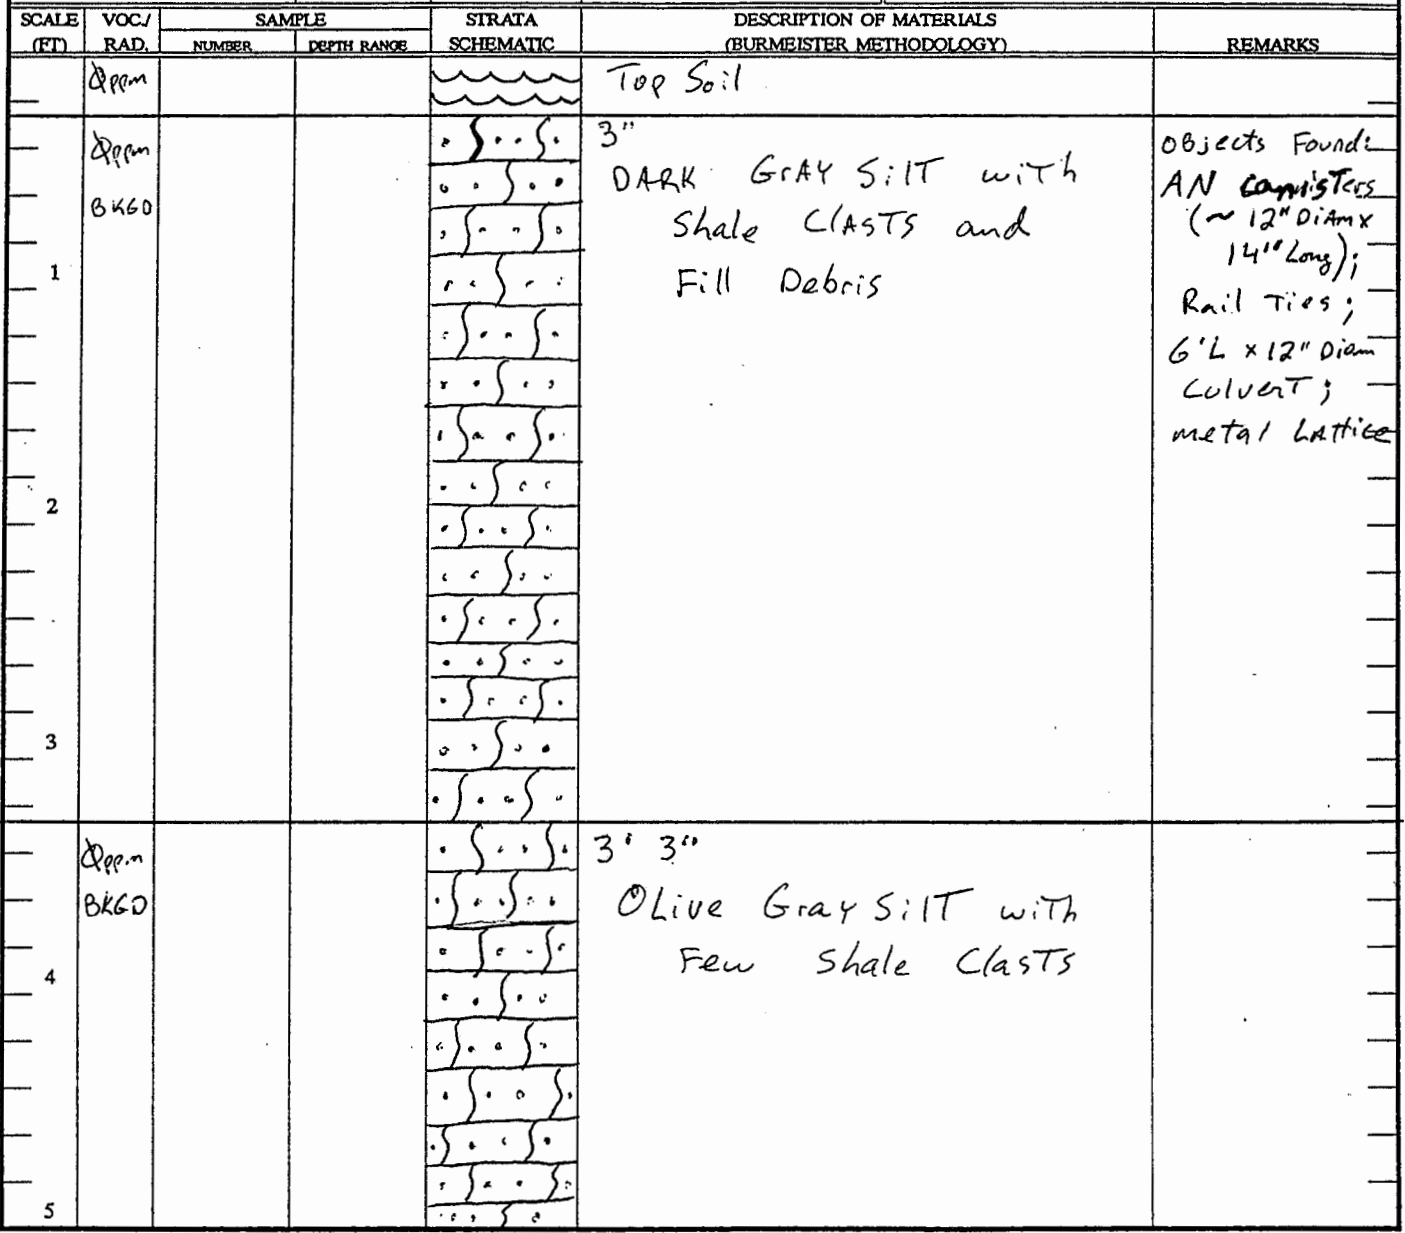 SCALE (FT)
VOC./ RAD.
SAMPLE
NUMBER
DEPTH RANGE
STRATA SCHEMATIC
DESCRIPTION OF MATERIALS
(BURMEISTER METHODOLOGY)
REMARKS
0ppm
Top Soil
0ppm
BKGD
3"
DARK GrAY SilT with
Shale ClASTS and
Fill Debris
OBjects Found:
AN cannisTers
(~ 12" DiAm x
14" Long);
Rail Ties;
6'L x 12" Diam
CulverT;
metal LAttice
1
2
3
0ppm
BKGD
3' 3"
OLive Gray SilT with
Few Shale ClasTs
4
5